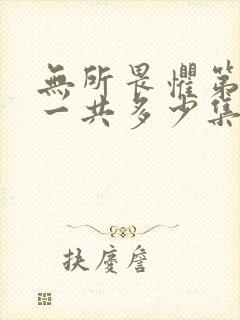 無所畏懼第
一共多少集
扶慶詹